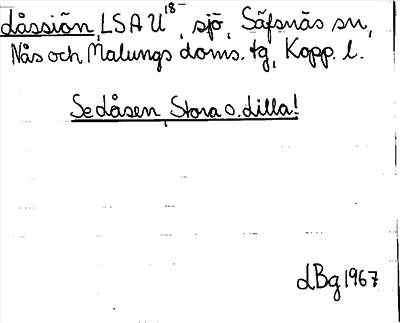 dåssiön, LSA U 18–, sjö, Säfsnäs sn,
Nås och Malungs doms. tg, Kopp. l.
Se dåsen, Stora o. dilla!
dBg 1967